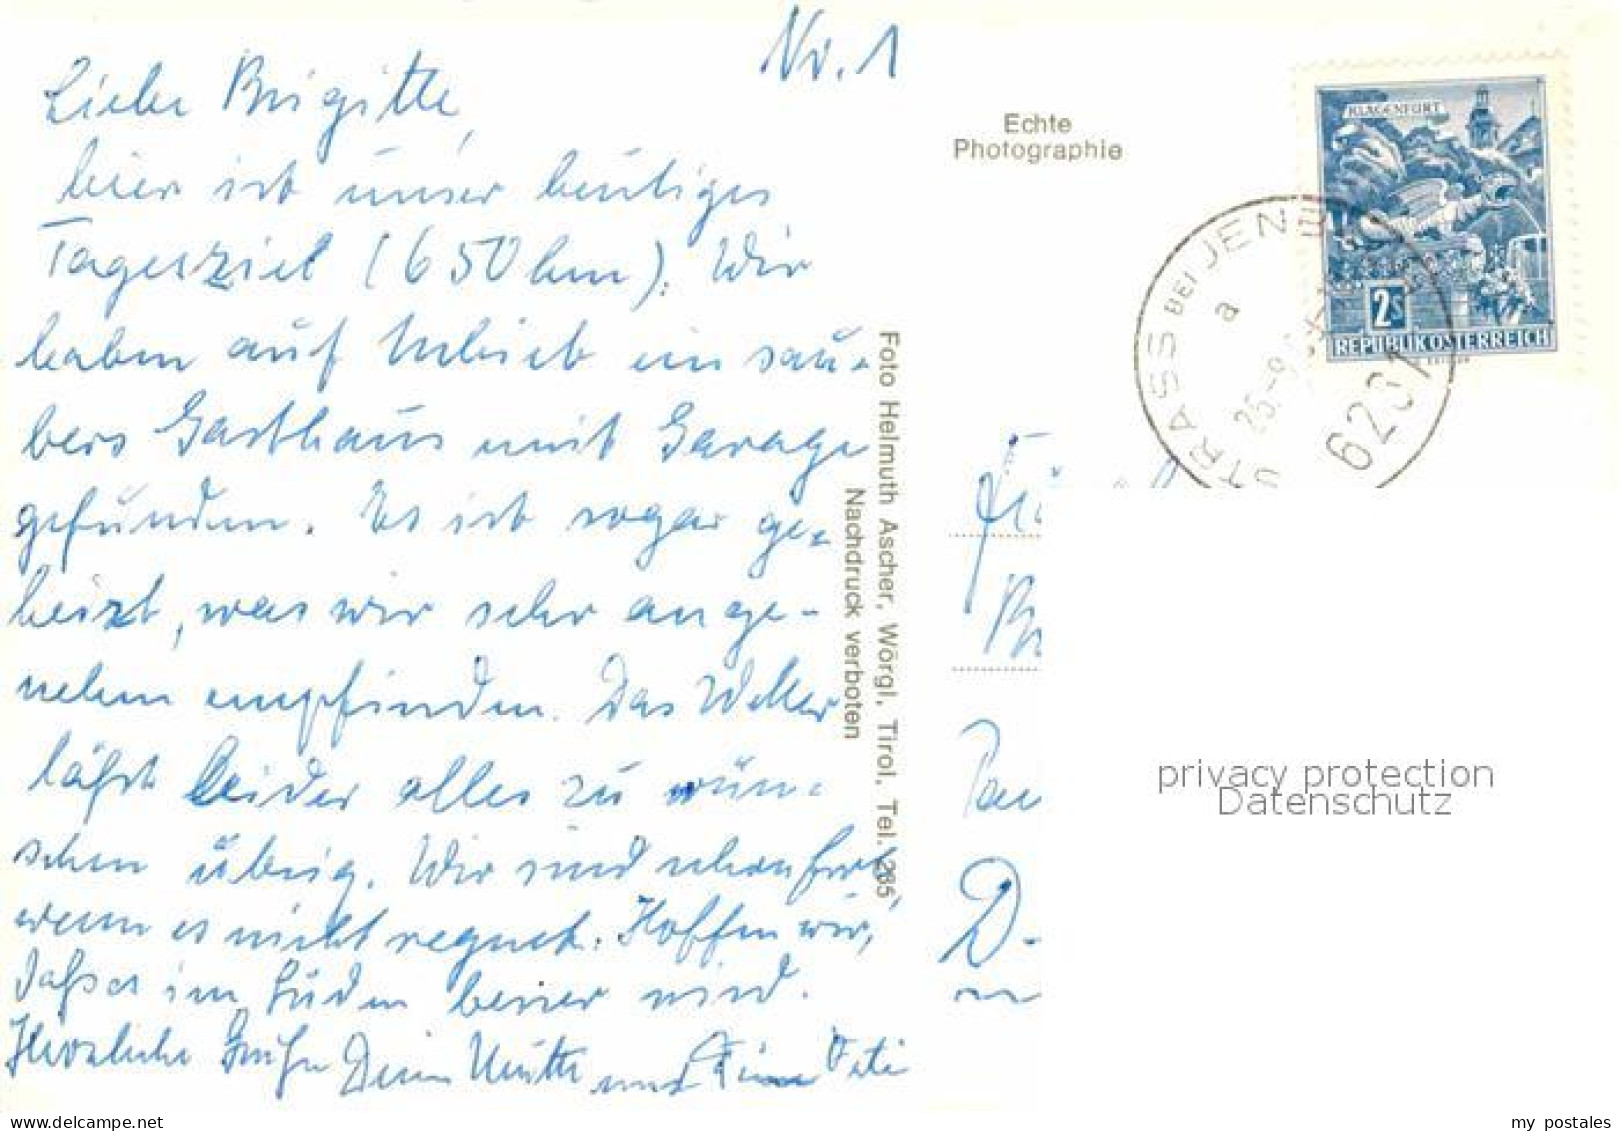 Nr. 1
Liebe Brigitte,
hier ist unser heutiges
Tagesziel (650 km). Wir
haben auf Anhieb ein sau-
bers Gasthaus mit Garage
gefunden. Es ist sogar ge-
heizt, was wir sehr ange-
nehm empfinden. Das Wetter
läßt leider alles zu wün-
schen übrig. Wir sind schon froh,
wenn es nicht regnet. Hoffen wir,
daß es im Süden besser wird.
Herzliche Grüße Deine Mutti und Vati
Echte
Photographie
Foto Helmuth Ascher, Wörgl, Tirol, Tel. 285
Nachdruck verboten
KLAGENFURT
2s
REPUBLIK ÖSTERREICH
STRASS BEI JENB
a
25.-9.
6261
privacy protection
Datenschutz
www.delcampe.net
my_postales